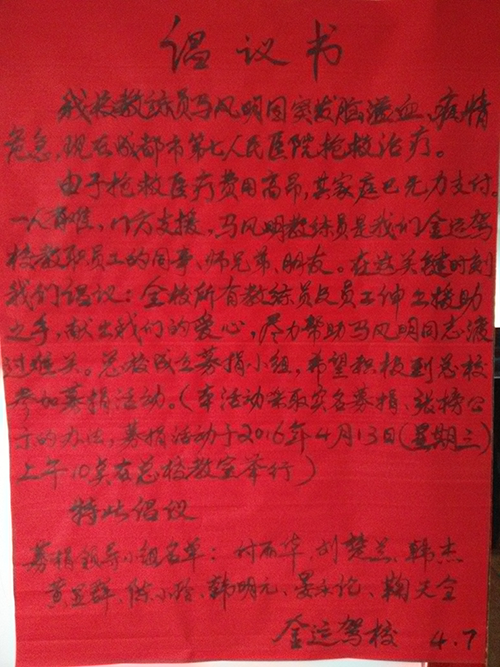 倡议书
我校教练员马风明因突发脑溢血、病情
危急,现在成都市第七人民医院抢救治疗。
由于抢救医疗费用高昂,其家庭已无力支付
一人有难,八方支援,马风明教练员是我们金运驾
校教职员工的同事、师兄弟、朋友。在这关键时刻
我们倡议:全校所有教练员及员工伸出援助
之手,献出我们的爱心,尽力帮助马风明同志渡
过难关。总校成立募捐小组,希望积极到总校
参加募捐活动。(本活动采取实名募捐、张榜公
示的办法,募捐活动于2016年4月13日(星期三)
上午10点在总校教室举行)
特此倡议
募捐领导小组名单:付 华、刘楚兰、韩杰
黄 群、陈小玲、韩明元、晏永伦、鞠天全
金运驾校 4.7